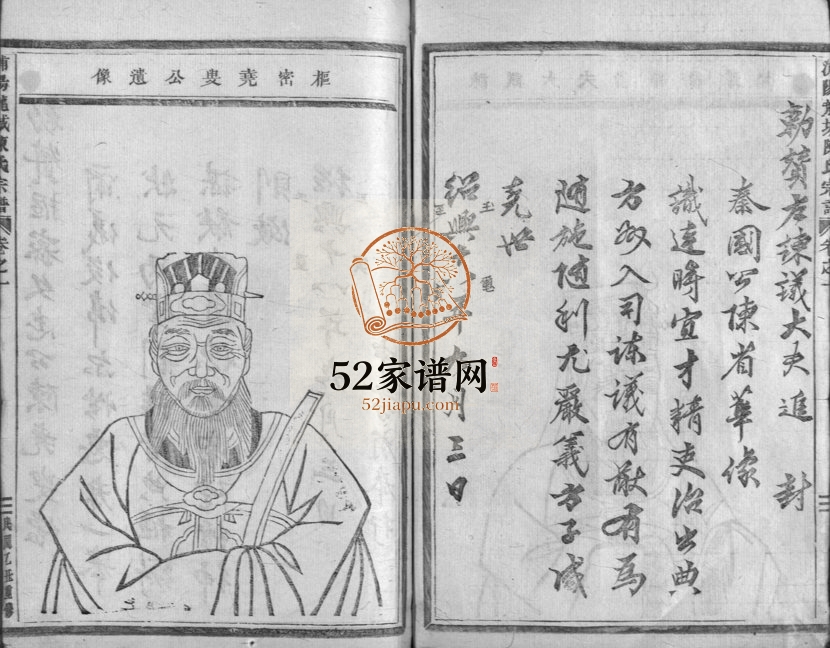 勅贊左諫議大夫進 封
秦國公陳省華像
識達時宜才精吏治出典
方州入司諫議有猷有為
随施随利尤嚴義方子咸
堯世
紹興
月三日
樞密堯叟公遺像
52家谱网
52jiapu.com